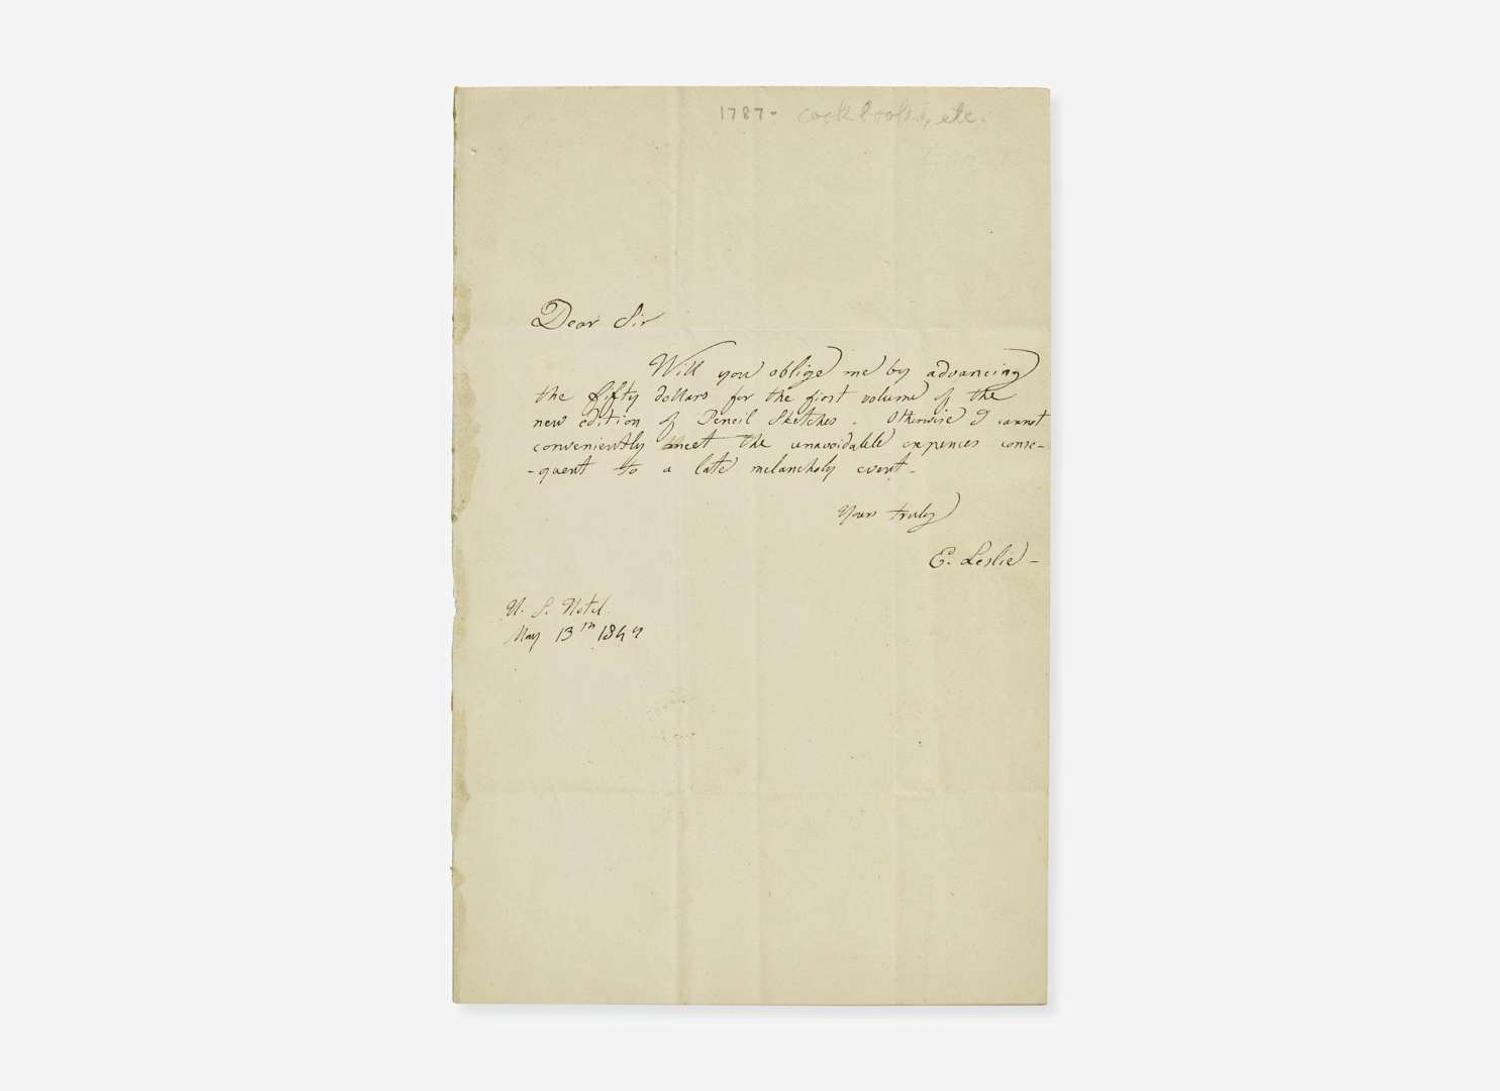 1787- cook books, etc.
Dear Sir
Will you oblige me by advancing
the fifty dollars for the first volume of the
new edition of Pencil Sketches. Otherwise I cannot
conveniently meet the unavoidable expenses conse-
-quent to a late melancholy event-
Yours truly
E. Leslie-
U. S. Hotel
May 13th